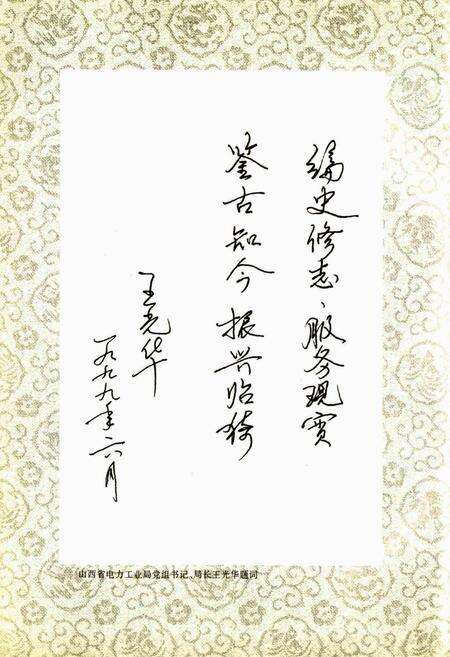 编史修志、服务现实
鉴古知今 振兴临猗
王光华
一九九九年六月
山西省电力工业局党组书记、局长王光华题词